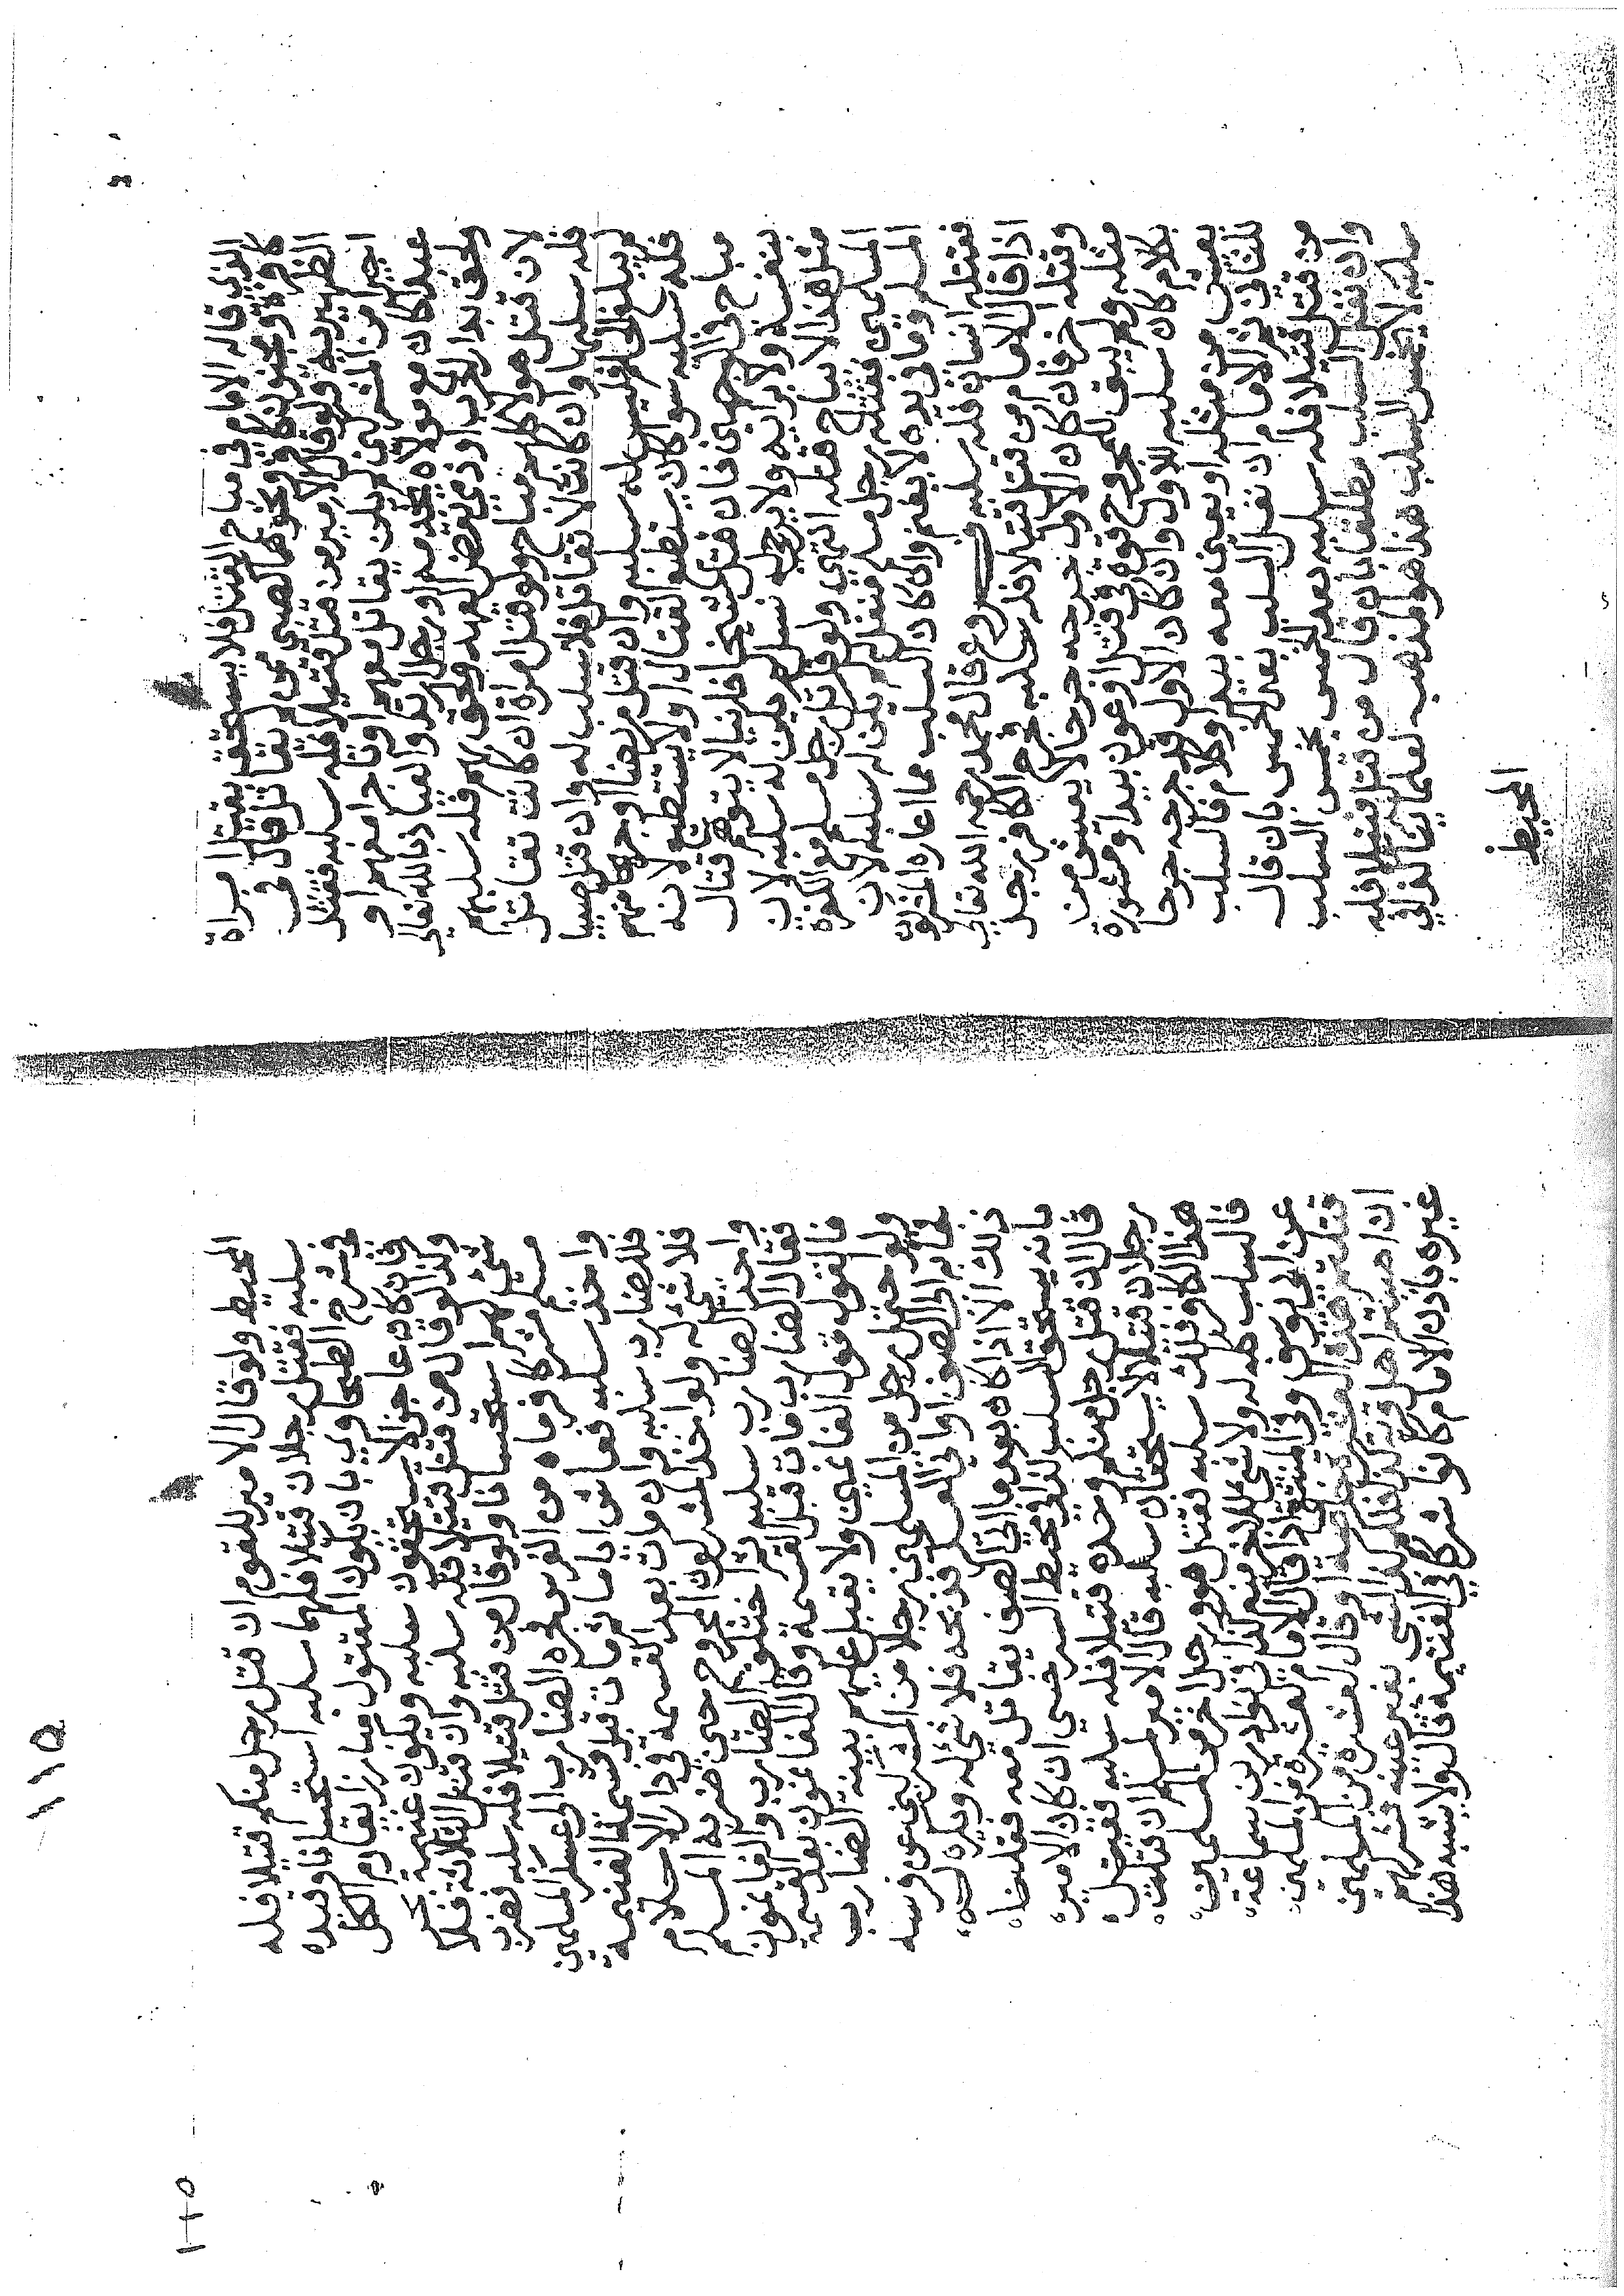 الذي قاله الامام في مباح القتل فلا يستحق بقتل امراة
كافرة ومجنون كافر ونحوهما كصبي لم يقاتل قال في
الظهيرية ولو قال الامير من قتل قتيلا فله سلبه فقتل
اجيرا من المشركين لم يكن يقاتل معهم او تاجرا معهم او
عبدا كان مع مولاه يخدمه او رجلا ارتد والعياذ بالله تعالى
ولحق بدار الحرب او ذمي نقض العهد ولحق بهم فله سلبهم
لان قتل هولاء كلهم مباح ولو قتل امراة ان كانت تقاتل
فله سلبها وان كانت لا تقاتل فلا سلب له وان قتل صبيا
لم يبلغ الحلم فليس له سلبه وان قتل مريضا او جريحا منهم
فله سلبه سوا كان يستطيع القتال او لا يستطيع لانه
مباح وفي السرخسي فان قتل شيخا فانيا لا يتوهم قتال
بنفسه ولا برايه ولا يرجى له نسل لم يكن له سلبه لان
مثل هذا لا يباح قتله انتهى ولو قتل رجل مسلم مع الكفرة
المسلمين فقتله رجل مسلم لم يكن له سلبه لان
المسلم وما في يده لا يغنم وان كان السلب مما اعاره المشركون
فقتله انسان فله سلبه فروع قال محمد رحمه الله تعالى
اذا قال الامام من قتل قتيلا فله سلبه فجرح الكافر رجل
وقتله اخر فان كان الاول جرحه جرحا لا يعيش من
مثله ولم يبق للمجروح قوة في قتل او عون بيد او مشورة
بكلام كان سلبه للاول وان كان الاول قد جرحه جرحا
يعيش من مثله او يعين معه بيد او كلام فالسلب
للثاني ثم الامام ان نفل السلب بعد الخمس بان قال
من قتل قتيلا فله سلبه بعد الخمس يخمس السلب
وان نفل السلب مطلقا بان قال من قتل قتيلا فله
سلبه لا يخمس السلب هذا هو مذهب
المحيط
١١٥
المحيط ولو قال الامير للقوم ان قتل رجل منكم قتيلا فله
سلبه فقتل رجلان قتيلا فلهما سلبه استحسانا وقيده
في شرح الطحاوي بان يكون المقتول مبارزا يقاوم الكل
فان كان عاجزا لا يستحقون سلبه ويكون غنيمة
ولذا لو قال من قتل قتيلا فله سلبه وان قتله الثلاثة فلا
شي لهم استحسانا ولو قال من قتل قتيلا فله سلبه فضرب
مسلم مشركا فرماه من الفرس وجره الضارب الى عسكر المسلمين
واخذ سلبه فعاش اياما ثم مات قبل قسمة الغنيمة
فللضارب سلبه وان مات بعد القسمة وفي دار الاسلام
فلا شي له ولو اخذ المشركون المجروح حين ضربه المسلم
واخذ الضارب سلبه ثم اختلف الضارب والغانمون
فقال الضارب مات قبل القسمة وقال الغانمون بعد القسمة
فالقول قول الغانمين ولا يقبل عليهم بينة الضارب
ولو احتمل رجل من المسلمين رجلا من المشركين عن فرسه
وجاء به الى الصف او الى العسكر فذبحه فلا شي له ويكره له
ذلك الا اذا كان بعد ما اتى الصف يقاتل معه فقتله
فانه يستحق السلب كذا في محيط السرخسي ان كان الامير
قال ان قتل رجل منكم وحده قتيلا فله سلبه فقتل
رجلان قتيلا لا يستحقان سلبه قال الامير لمسلم ان قتلت
هذا الكافر فلك سلبه فقتل هو ورجل اخر من المسلمين
فالسلب كله له ولا شي للاخر منه كذا في نوادر بن سماعة
عن ابي يوسف وفي المنتقى اذا قال الامام لعشرة من المسلمين
غيره باذن الامام كانوا شركاء في الغنيمة قال ولا يشبه هذا